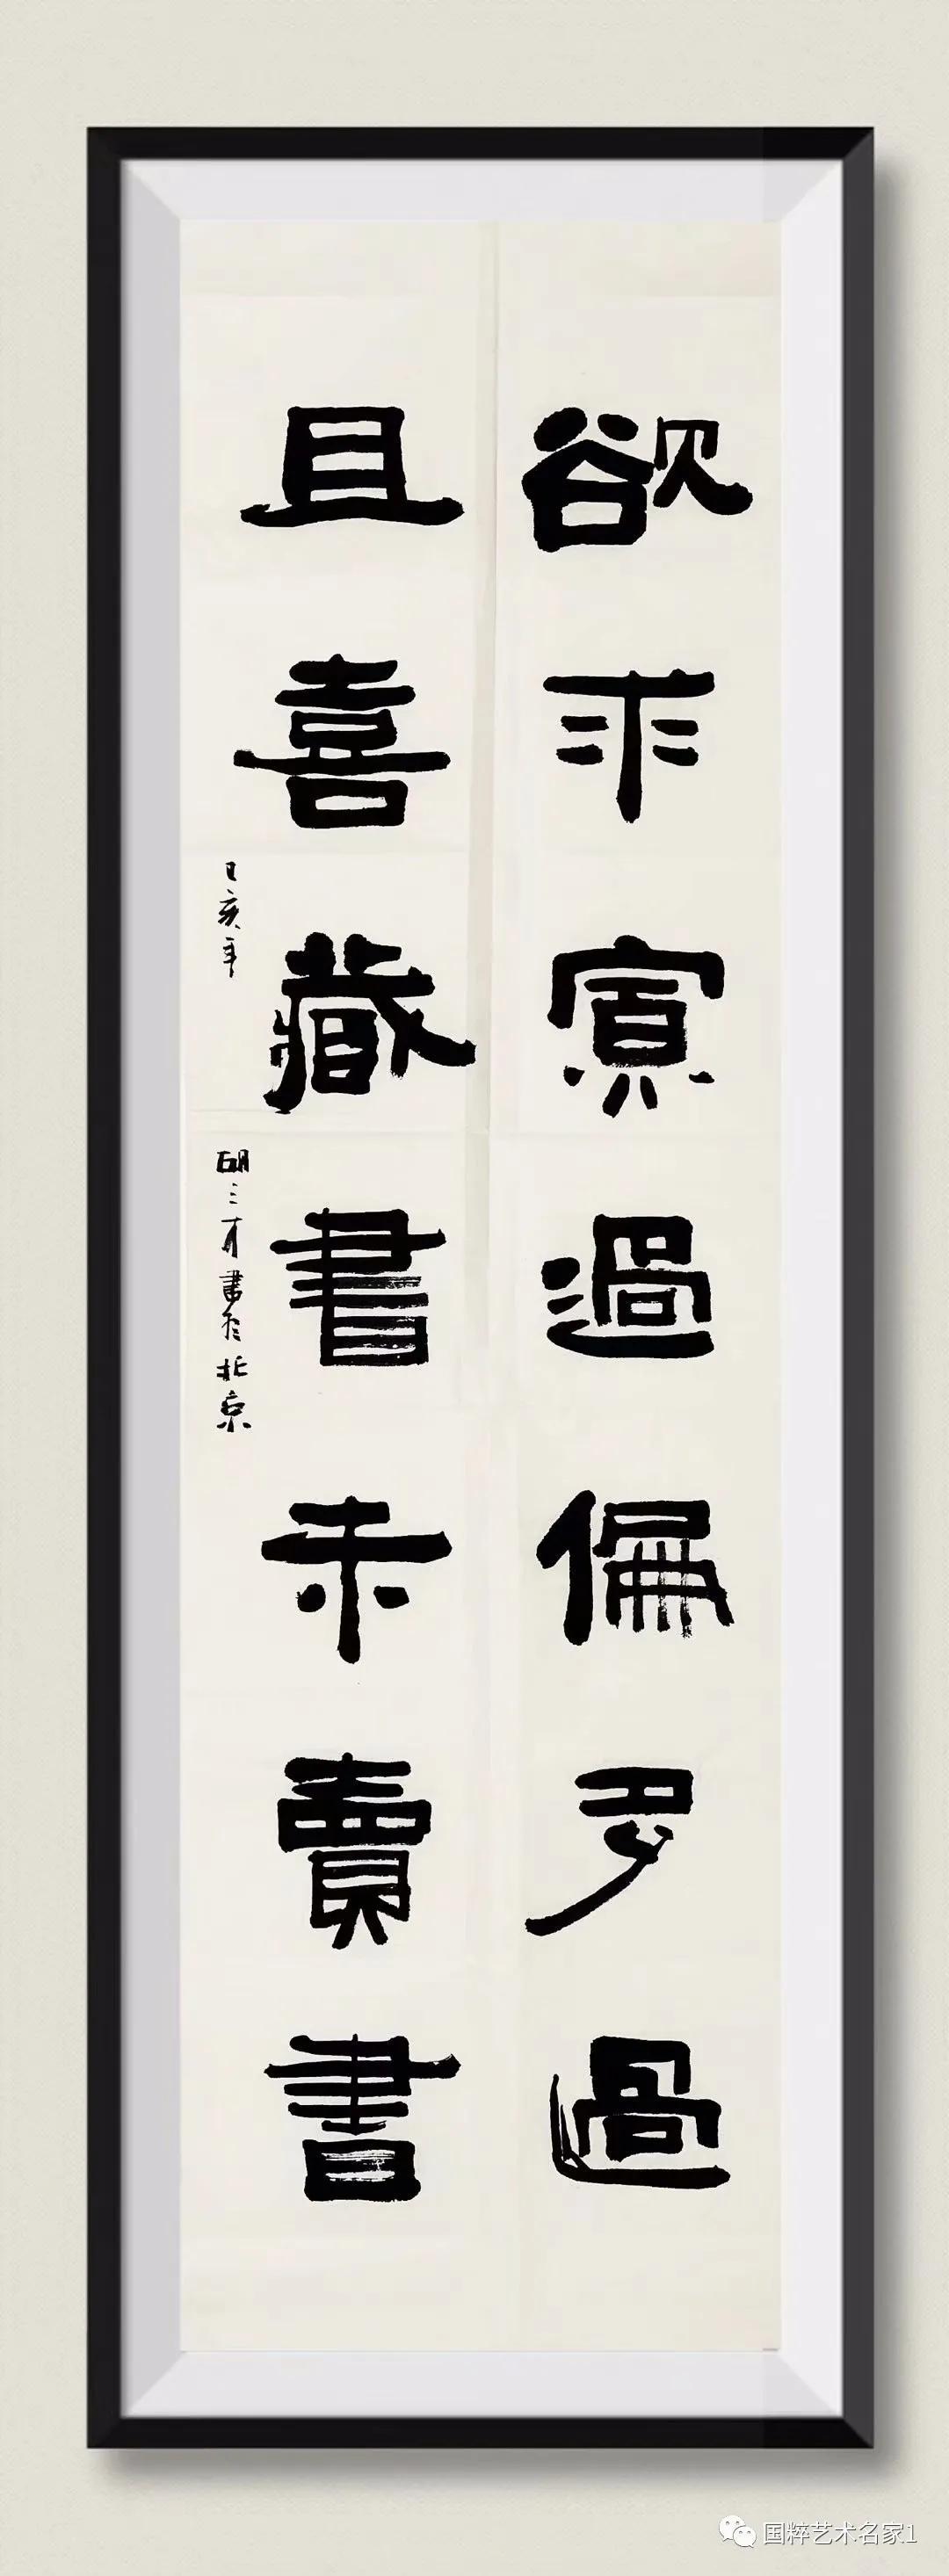 欲求寡過偏多過
且喜藏書未賣書
己亥年
胡三 書於北京
国粹艺术名家1